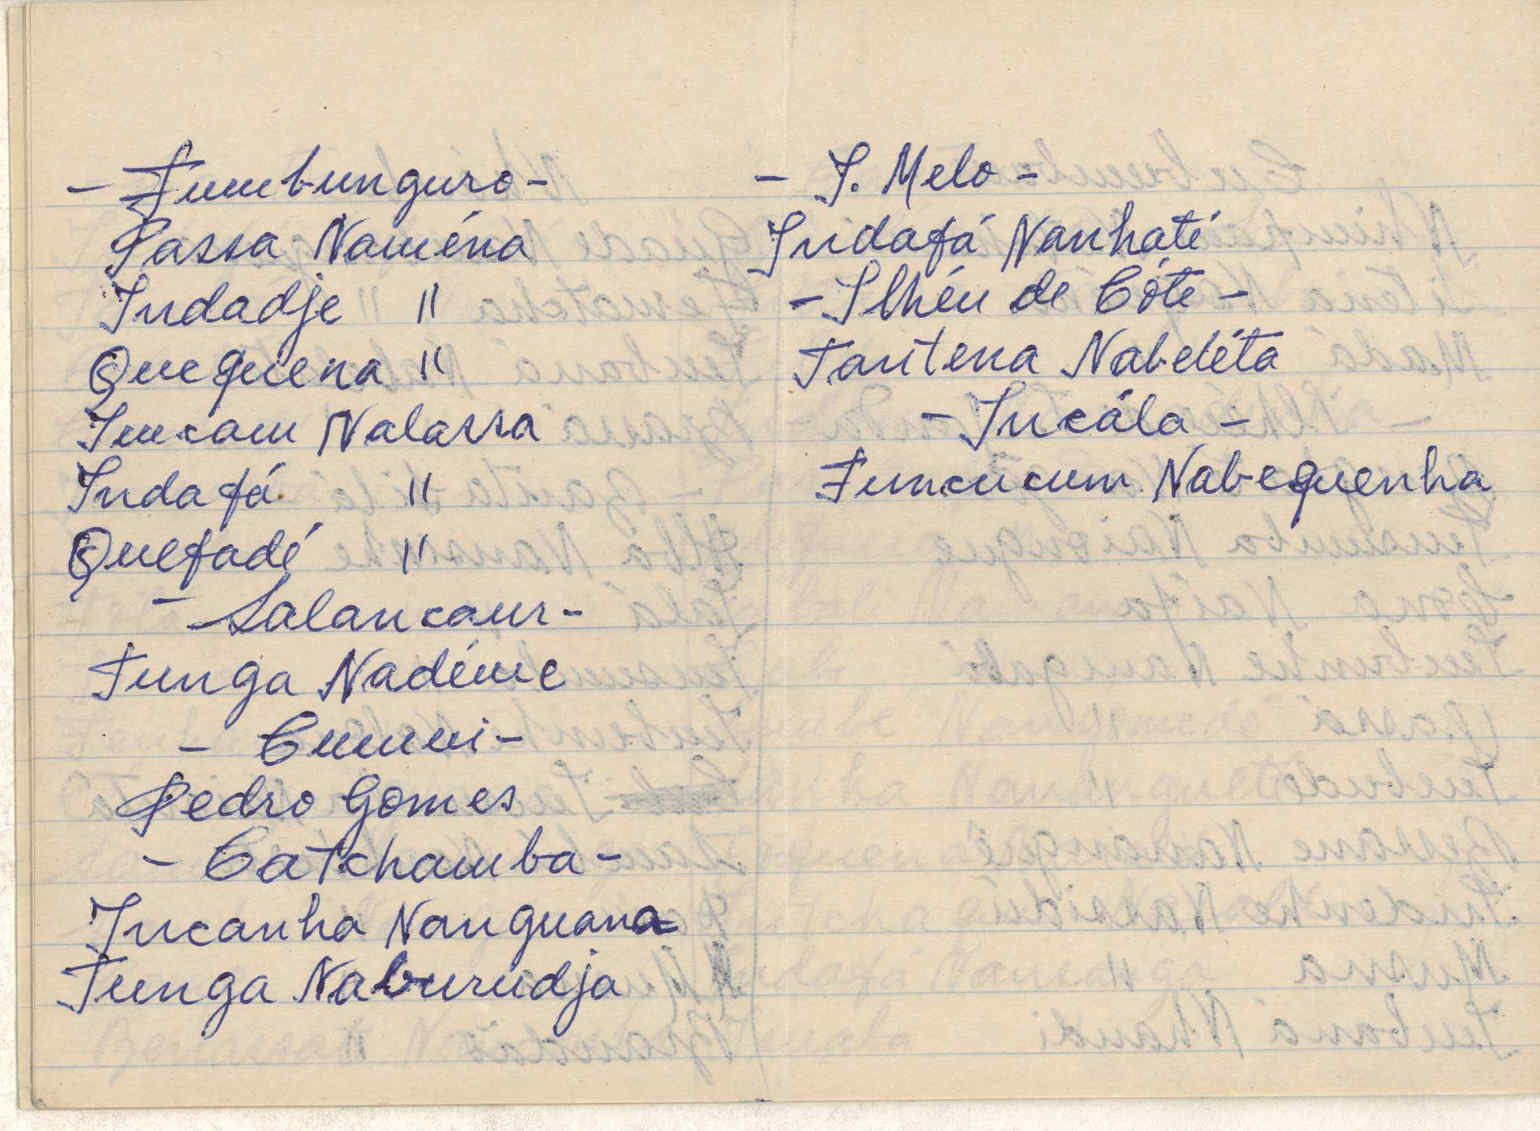 - Fumbunguro -
Passa Naména
Indadje "
Quequena "
Imcam Nalassa
Indafá "
Quefadé "
- Salancaur -
Tunga Nadéme
- Cumui -
Pedro Gomes
- Catchamba -
Incanha Nanguana
Tunga Naburudja
- I. Melo -
Indafá Nanhaté
- Ilhéu de Cóte -
Tantena Nabeléta
- Incála -
Funcucum Nabequenha